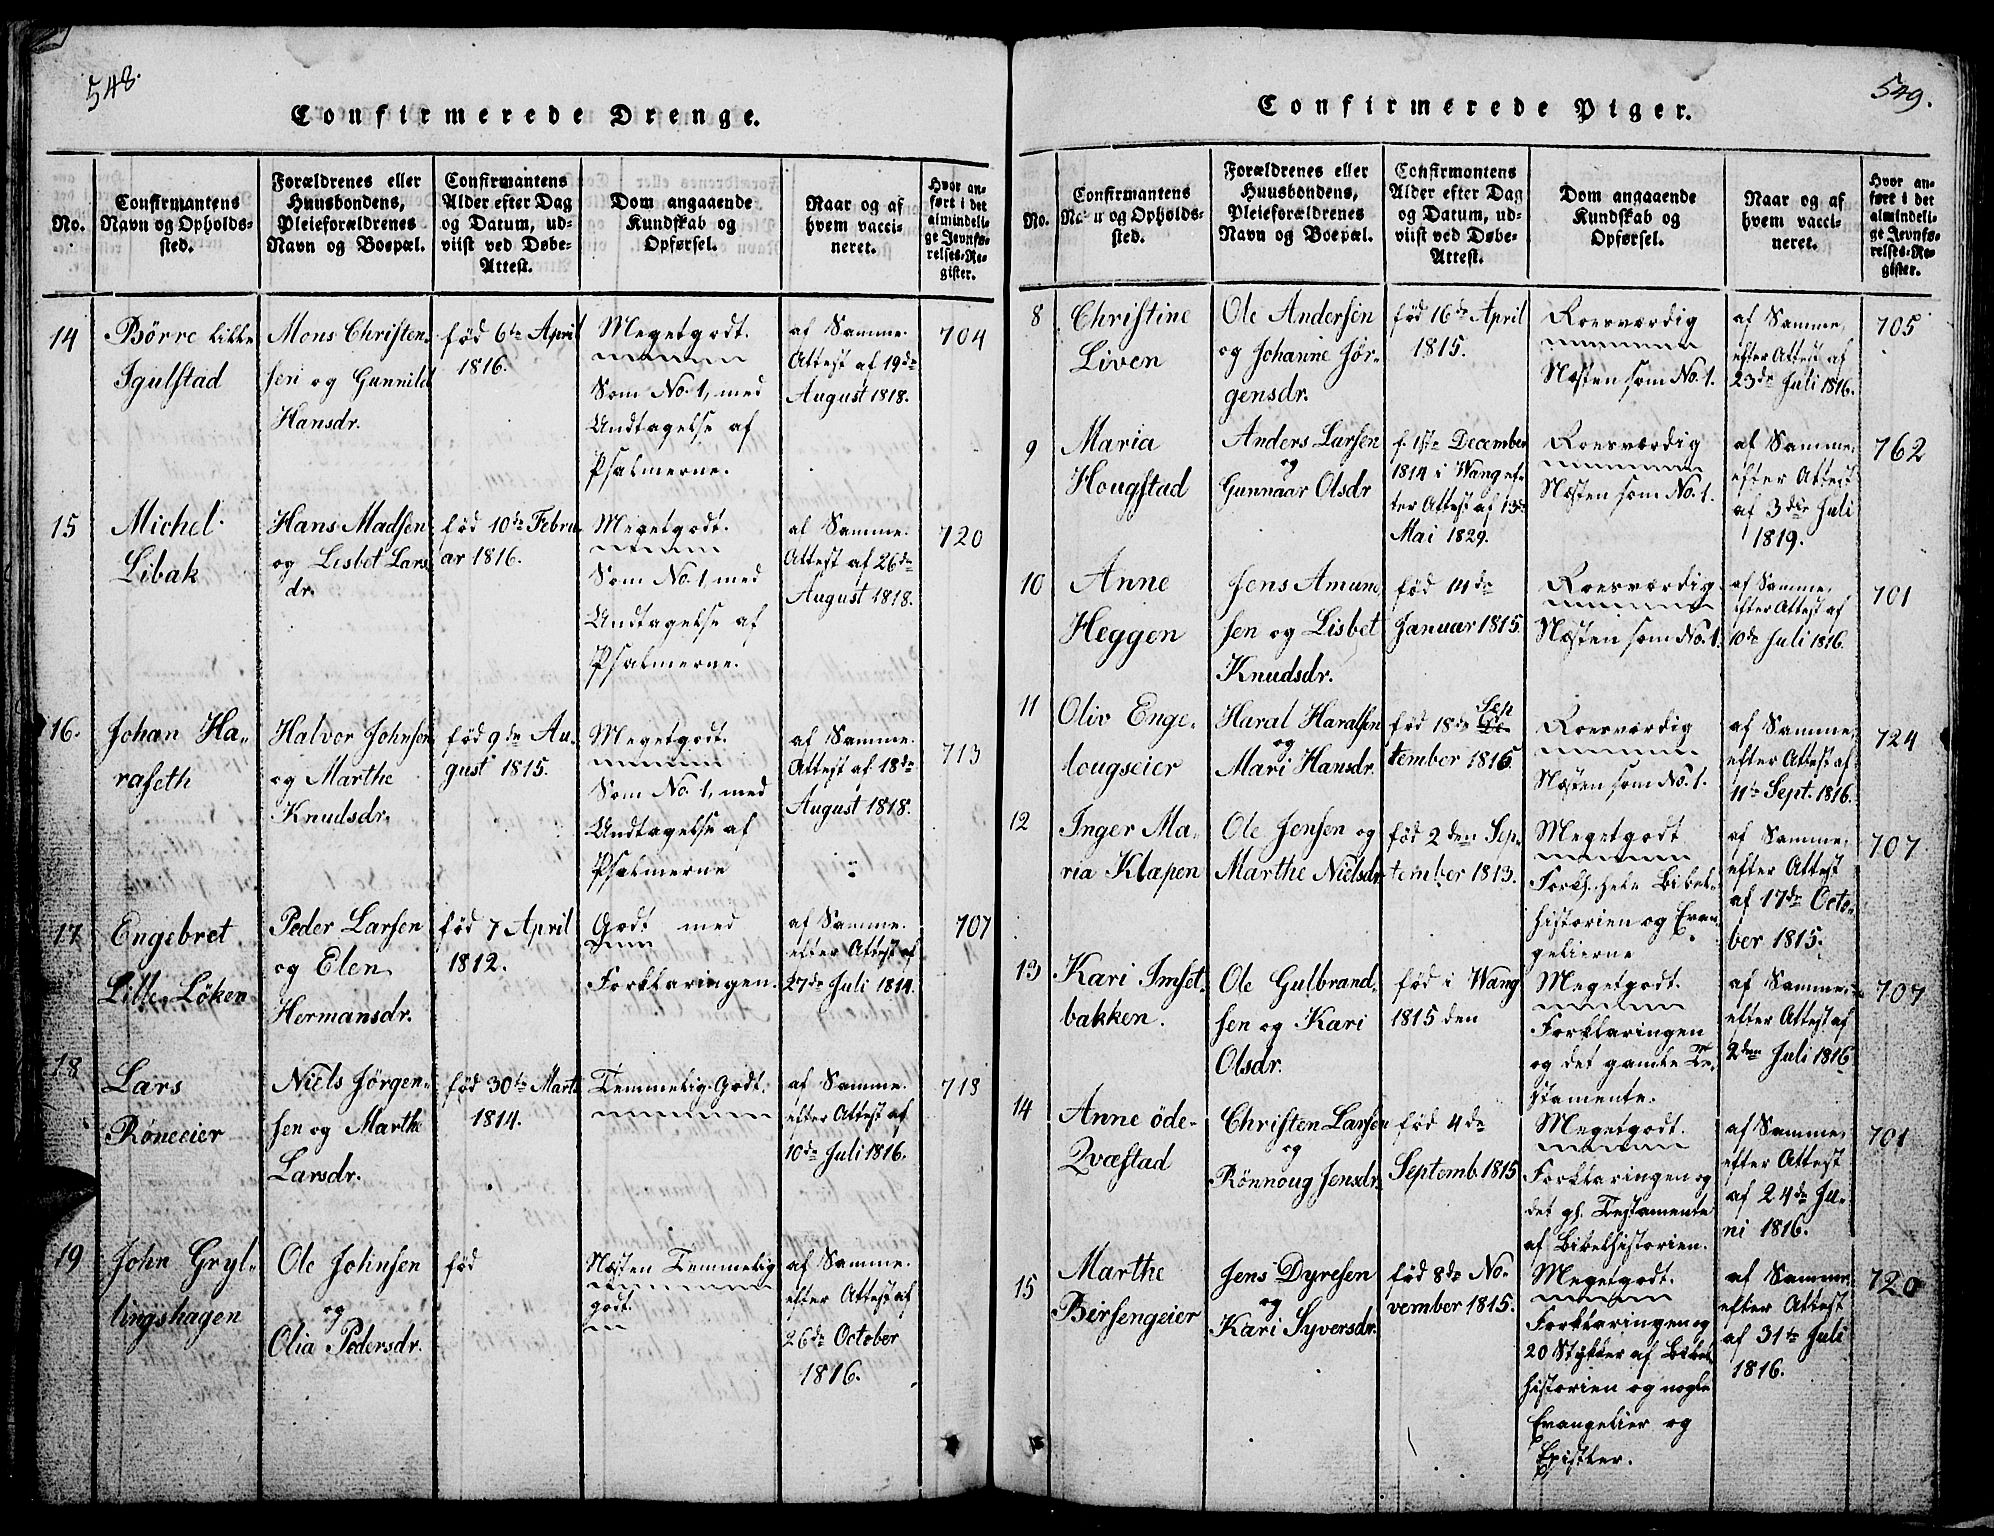 548.
Confirmerede Drenge.
No.
Confirmantens
Navn og Opholds-
sted.
Forældrenes eller
Huusbondens,
Pleieforældrenes
Navn og Boepæl.
Confirmantens
Alder efter Dag
og Datum, ud-
viist ved Døbe-
Attest.
Dom angaaende
Kundskab og
Opførsel.
Naar og af
hvem vacci-
neret.
Hvor an-
ført i det
almindeli-
ge Jevnfø-
relses-Re-
gister.
14
Börre Lille
Igulstad
Mons Christen-
sen og Gunnild
Hansdr.
fød 6te April
1816.
Megetgodt.
Som No. 1, med
Undtagelse af
Psalmerne.
af Samme.
Attest af 19de
August 1818.
704
15
Michel
Libak
Hans Madsen
og Lisbet Lars
dr.
fød 10de Febru-
ar 1816.
Megetgodt.
Som No. 1 med
Undtagelse af
Psalmerne.
af Samme.
Attest af 26de
August 1818.
720
16.
Johan Ha-
rafeth
Halvor Johnsen
og Marthe
Knudsdr.
fød 9de Au-
gust 1815.
Megetgodt.
Som No. 1, med
Undtagelse af
Psalmerne
af Samme.
Attest af 18de
August 1818.
713
17
Engebret
Lille Löken
Peder Larsen
og Elen
Hermansdr.
fød 7 April
1812.
Godt med
Forklaringen.
af Samme.
efter Attest af
27de Juli 1814.
707
18
Lars
Röneeier
Niels Jörgen-
sen og Marthe
Larsdr.
fød 30te Marts
1814.
Temmelig Godt.
af Samme.
efter Attest af
10de Juli 1816.
718
19
John Gryl-
lingshagen
Ole Johnsen
og
Olia Pedersdr.
fød
Næsten Temmelig
godt.
af Samme.
efter Attest af
26de October
1816.
549.
Confirmerede Piger.
No.
Confirmantens
Navn og Opholds-
sted.
Forældrenes eller
Huusbondens,
Pleieforældrenes
Navn og Boepæl.
Confirmantens
Alder efter Dag
og Datum, ud-
viist ved Døbe-
Attest.
Dom angaaende
Kundskab og
Opførsel.
Naar og af
hvem vacci-
neret.
Hvor an-
ført i det
almindeli-
ge Jevnfø-
relses-Re-
gister.
8
Christine
Liven
Ole Andersen
og Johanne Jör-
gensdr.
fød 16de April
1815.
Roesværdig
Næsten som No. 1.
af Samme,
efter Attest af
23de Juli 1816.
705
9
Maria
Hougstad
Anders Larsen
og
Gunnaar Olsdr
f. 1ste December
1814 i Wang ef-
ter Attest af 13de
Mai 1829.
Roesværdig
Næsten som No. 1.
af Samme,
efter Attest
af 3die Juli
1819.
762
10
Anne
Heggen
Jens Amund
sen og Lisbet
Knudsdr.
fød 14de
Januar 1815
Roesværdig
Næsten som No. 1.
af Samme,
efter Attest af
10de Juli 1816.
701
11
Oliv Enge-
lougseier
Haral Haralsen
og
Mari Hansdr.
fød 18de Sep
tember 1815
Roesværdig
Næsten som No. 1.
af Samme,
efter Attest af
11te Sept. 1816.
724
12
Inger Ma-
ria Klapen
Ole Jensen og
Marthe Nielsdr
fød 2den Sep-
tember 1813.
Megetgodt
Forks. hele Bibel-
historien og Evan-
gelierne
af Samme,
efter Attest
af 17de Octo-
ber 1815.
707
13
Kari Imset-
bakken.
Ole Gulbrand-
sen og Kari
Olsdr.
fød i Wang
1815 den
Megetgodt.
Forklaringen
og det gamle Te-
stamente.
af Samme,
efter Attest af
2den Juli 1816
707
14
Anne öde-
Qvæstad
Christen Larsen
og
Rönnoug Jensdr.
fød 4de
Septemb. 1815
Megetgodt.
Forklaringen og
det gl. Testamente
af Bibelhistorien.
af Samme,
efter Attest
af 24de Ju-
ni 1816.
701
15
Marthe
Birsengeier
Jens Dyresen
og
Kari Syversdr.
fød 8de No-
vember 1815.
Megetgodt.
Forklaringen og
20 Stykker af Bibel-
historien og nogle
Evangelier og
Epistler.
af Samme
efter Attest
af 31te Juli
1816.
720